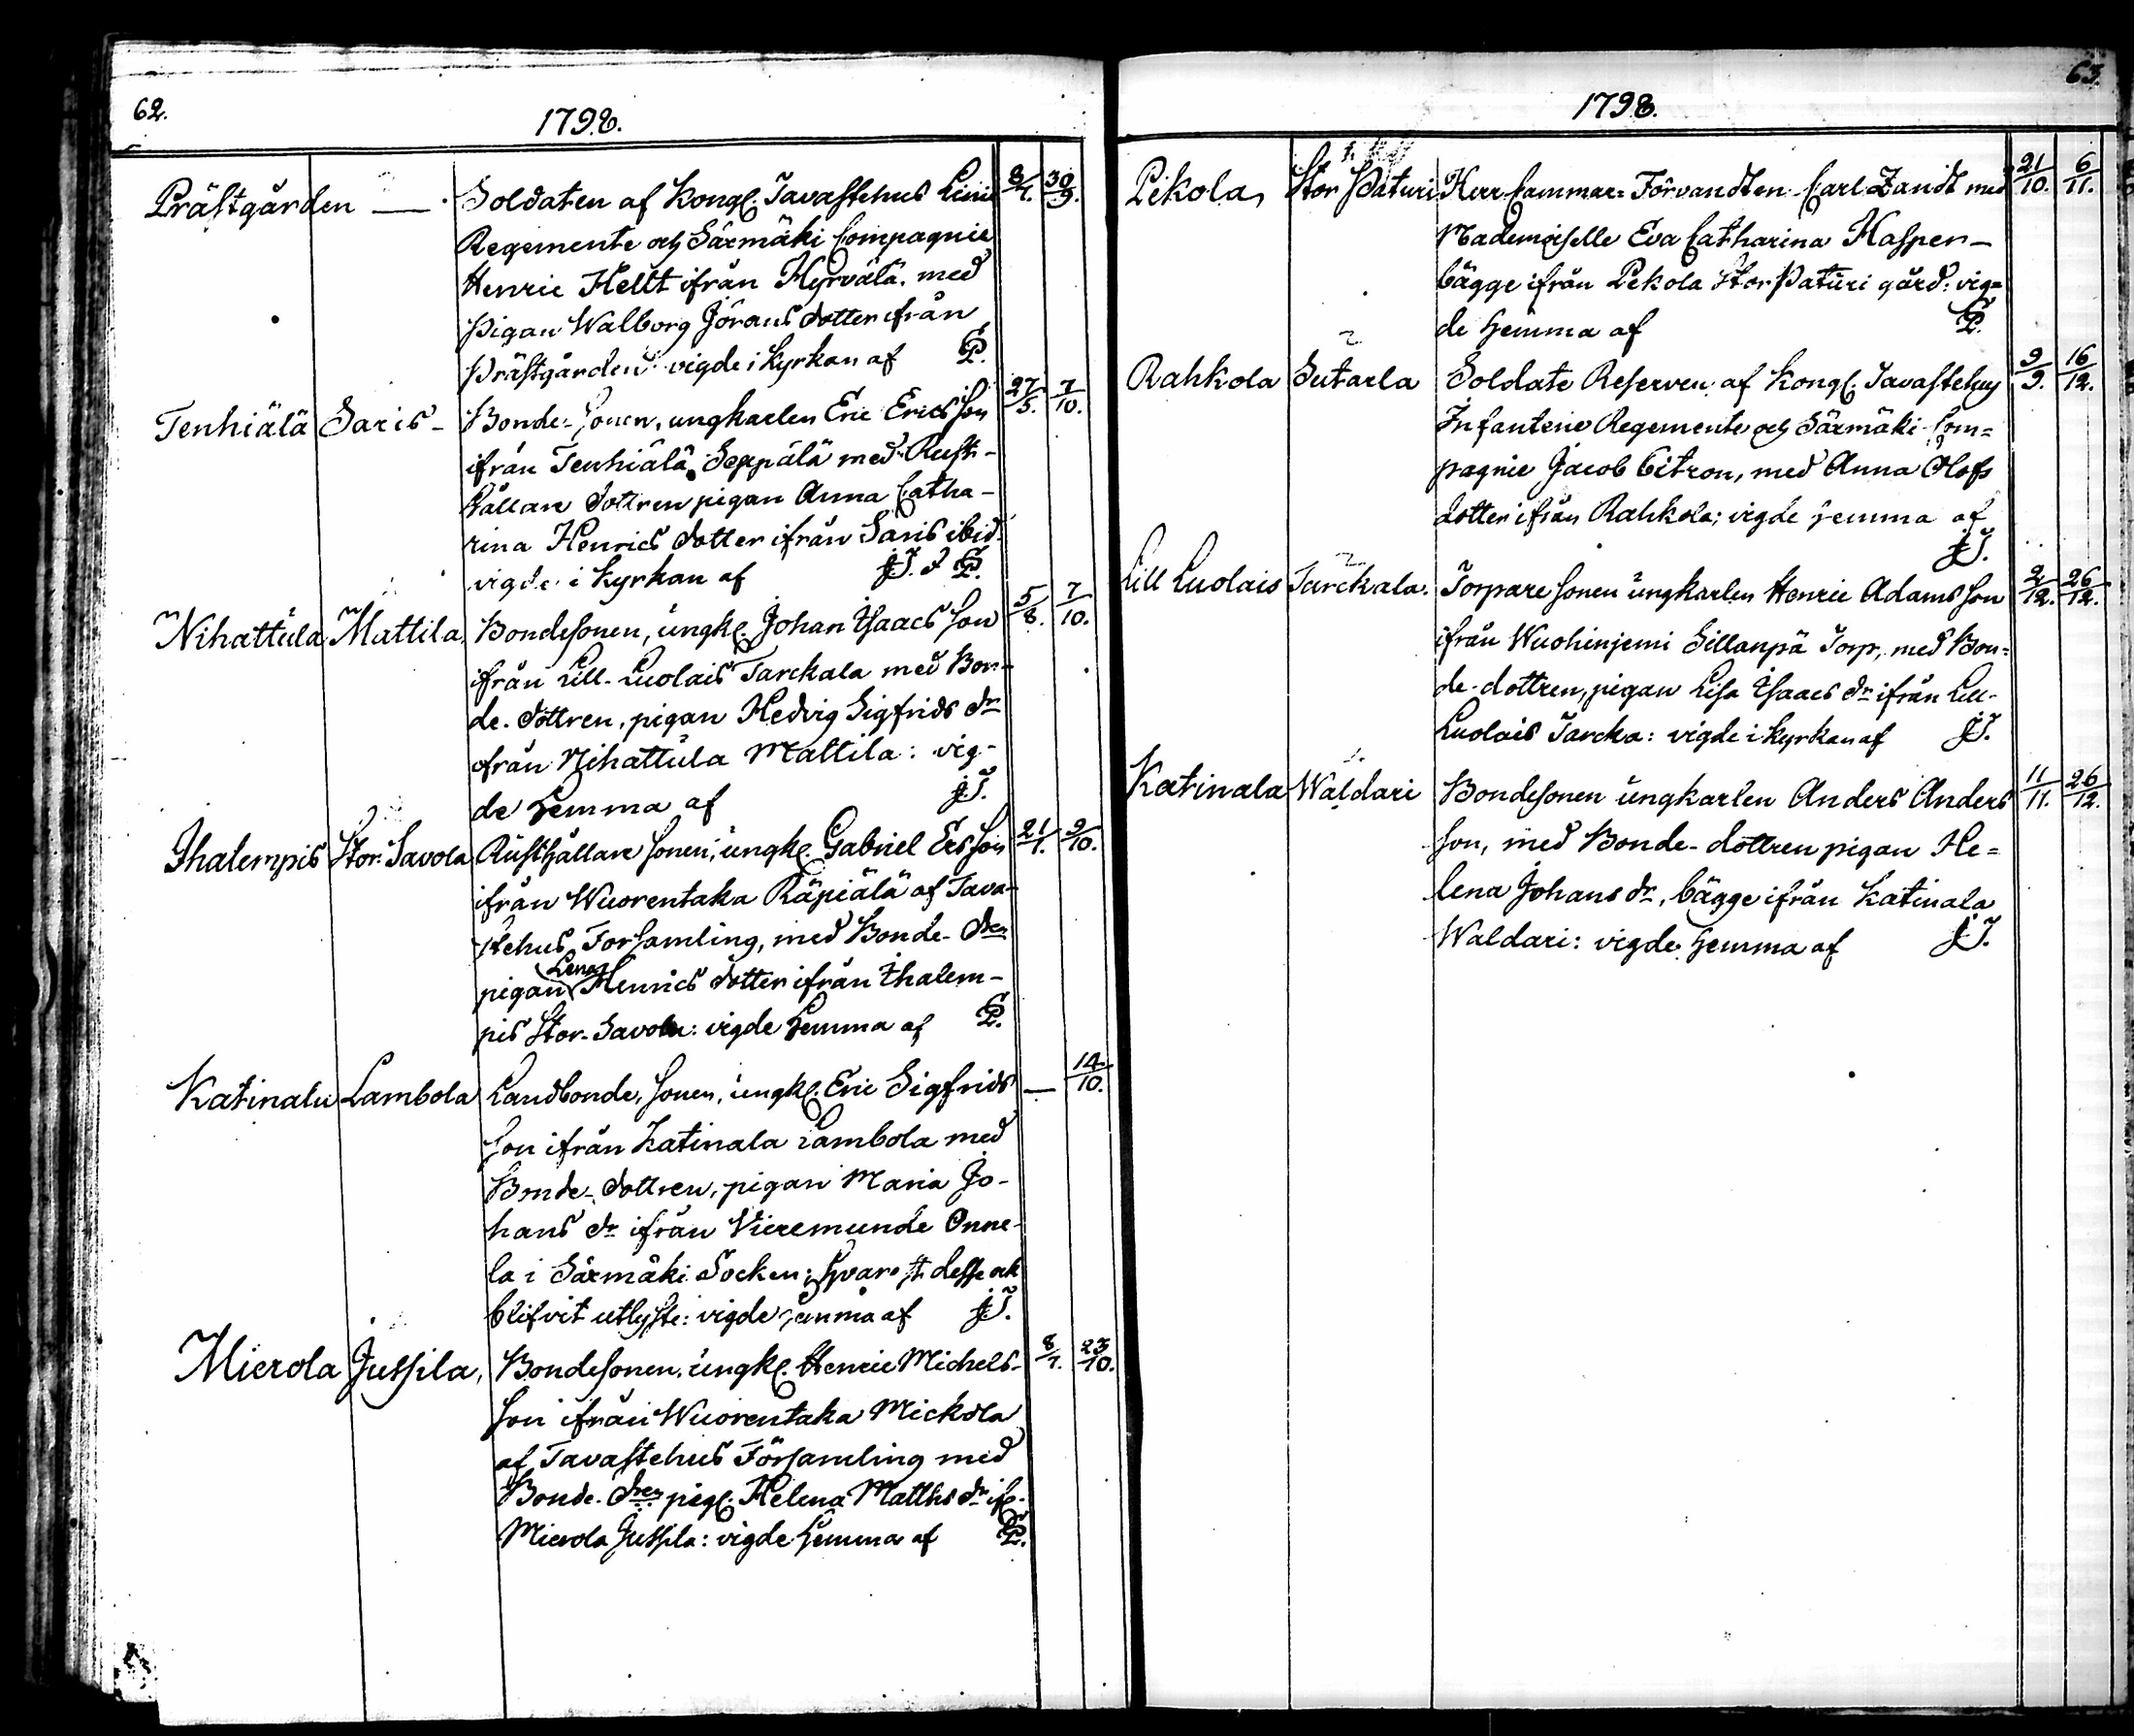 62.
1798.
Prästgården — Soldaten af Kongl. Tavastehus Linie 8/7. 30/9.
Regemente och Säxmäki Compagnie
Henric Hellt ifrån Hyrvälä. med
Pigan Walborg Jörans dotter ifrån
Prästgården: vigde i Kyrkan af EP.
Tenhiälä Saris - Bonde-Sonen, ungkarlen Eric Ericsson 27/5. 7/10.
ifrån Tenhiälä Seppälä med Rust-
hållare dottren pigan Anna Catha-
rina Henrics dotter ifrån Saris ibid.
vigde i Kyrkan af
Nihattula Mattila, Bondesonen, ungk. Johan Isaacs Son 5/8. 7/10.
ifrån Lill-Luolais Tarckala med Bon-
de-dottren, pigan Hedvig Sigfrids dr
ifrån Nihattula Mattila: vig-
de hemma af JJ.
Ihalempis Stor-Savola Rusthållare sonen, ungk. Gabriel Ersson 21/7. 9/10.
ifrån Wuorentaka Räpiälä af Tava-
stehus Församling, med Bonde-dren
pigan Lena Henrics dotter ifrån Ihalem-
pis Stor-Savola: vigde hemma af EP.
Katinala Lambola Landbonde, Sonen, ungk. Eric Sigfrids — 14/10.
Son ifrån Katinala Lambola med
Bonde-dottren, pigan Maria Jo-
hans dr ifrån Vieremunde Onne-
la i Säxmäki Socken; hvarest desse ock
blifvit utlyste: vigde hemma af JJ.
Mierola Jussila, Bondesonen, ungk. Henric Michels- 8/7. 23/10.
Son ifrån Wuorentaka Mickola
af Tavastehus Församling med
Bonde-dren pig. Helena Matths dr ifr.
Mierola Jussila: vigde hemma af EP.
63.
1798.
Pekola, Stor Paturi Herr Cammar-Förvandten Carl Zandt med 21/10. 6/11.
Mademoiselle Eva Catharina Hasper-
bägge ifrån Pekola Stor-Paturi gård: vig=
de hemma af EP.
Rahkola Sutarla Soldate Reserven af Kongl. Tavastehus 9/9. 16/12.
Infanterie Regemente och Säxmäki Com=
pagnie Jacob Citron, med Anna Olofs
dotter ifrån Rahkola; vigde hemma af
JJ.
Lill Luolais Tarckala. Torpare sonen ungkarlen Henric Adams Son 2/12. 26/12.
ifrån Wuohinjemi Sillanpä Torp, med Bon=
de-dottren, pigan Lisa Isaacs dr ifrån Lill-
Luolais Tarcka: vigde i kyrkan af JJ.
Katinala Waldari Bondesonen ungkarlen Anders Anders 11/11. 26/12.
Son, med Bonde-dottren pigan He=
lena Johans dr, bägge ifrån Katinala
Waldari: vigde hemma af JJ.